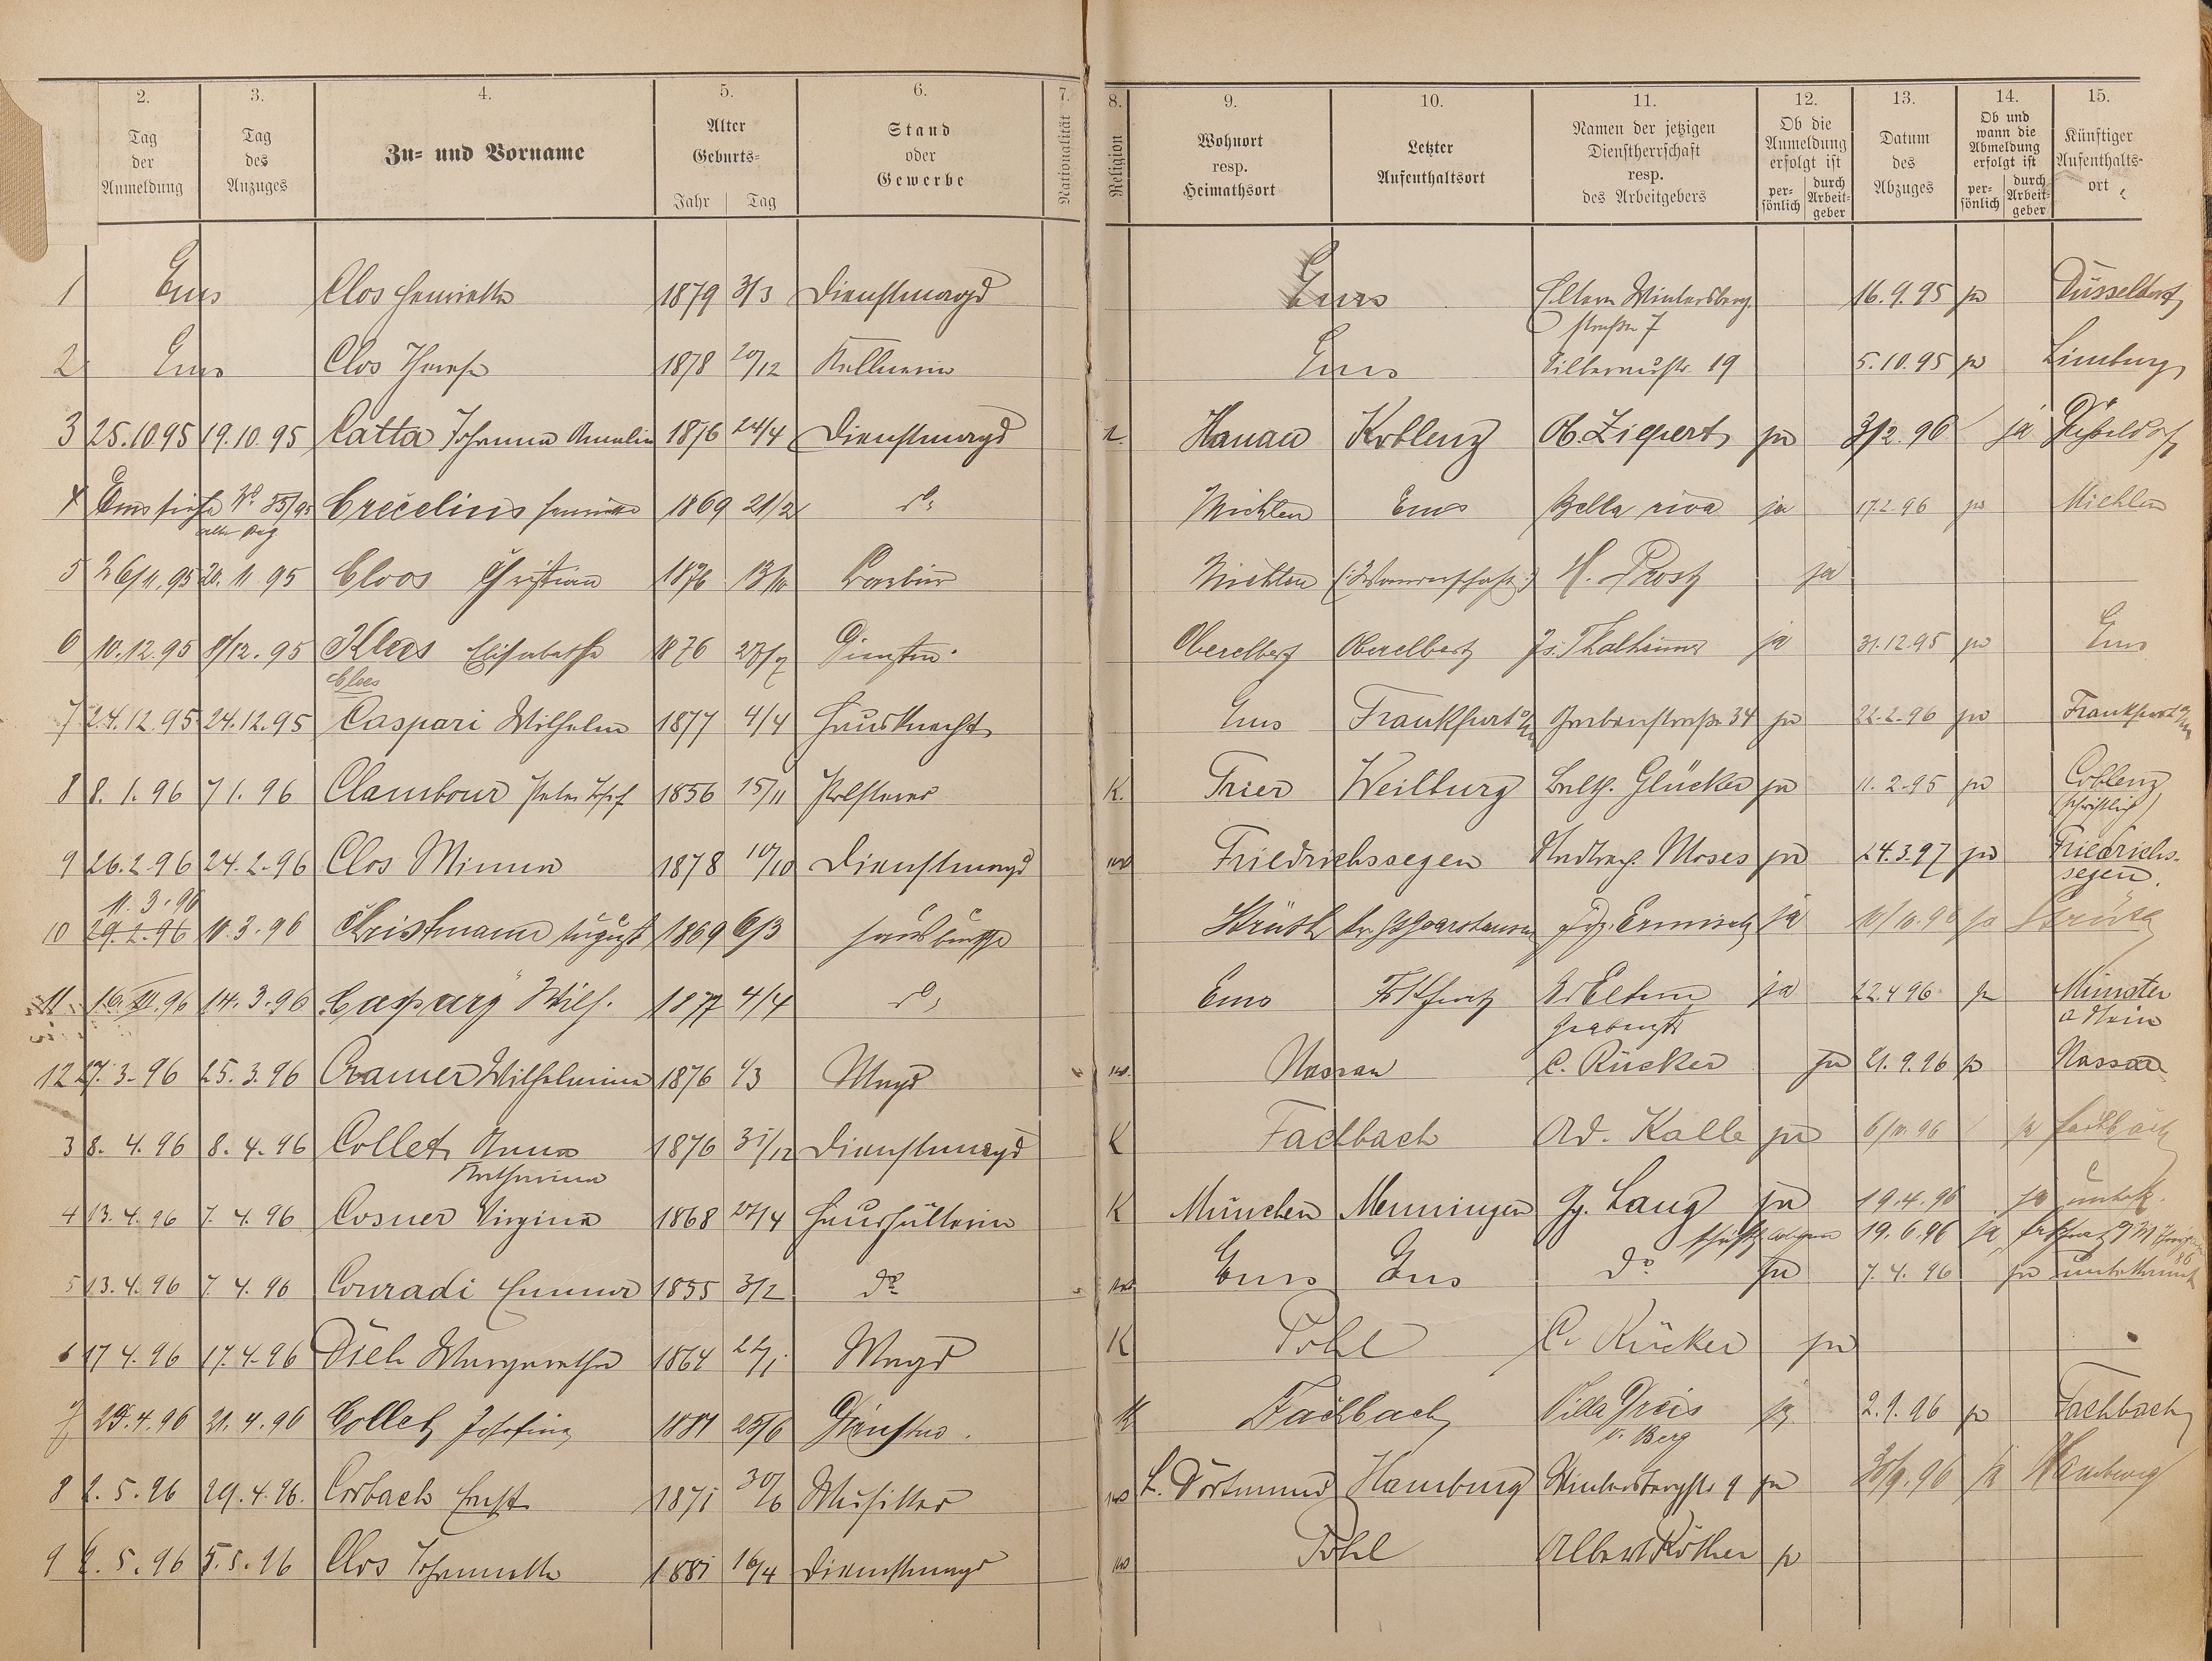 2. 3. 4. 5. 6. 7. 8. 9. 10. 11. 12. 13. 14. 15.
Tag der Anmeldung
Tag des Anzuges
Zu- und Vorname
Alter
Geburts-
Jahr Tag
Stand oder Gewerbe
Nationalität
Religion
Wohnort resp. Heimathsort
Letzter Aufenthaltsort
Namen der jetzigen Dienstherrschaft resp. des Arbeitgebers
Ob die Anmeldung erfolgt ist
per-sönlich durch Arbeit-geber
Datum des Abzuges
Ob und wann die Abmeldung erfolgt ist
per-sönlich durch Arbeit-geber
Künftiger Aufenthalts-ort
1 Ems Clos Henriette 1879 3/3 Dienstmagd Ems Eltern Wintersberg 16.9.95 ja Düsseldorf
straße 7
2 Ems Clos Therese 1878 20/12 Kellnerin Ems Silberaustr. 19 5.10.95 ja Limburg
3 25.10.95 19.10.95 Catta Johanna Amalie 1876 24/4 Dienstmagd Hanau Koblenz Ob. Ziepert ja 3/2.96 ja Düsseldorf
4 Ems siehe No. 35/95 Crecelius 1869 21/2 do Miehlen Ems Bella riva ja 17.2.96 ja Miehlen
5 26/11.95 20.11.95 Cloos Christian 1876 13/10 Barbier Miehlen (:Wanderschaft:) H. Prost ja
6 10.12.95 8/12.95 Klees Elisabetha 1876 27/7 Dienstm. Oberelbert Oberelbert Js. Thalheimer ja 31.12.95 ja Ems
Clees
7 24.12.95 24.12.95 Caspari Wilhelm 1877 4/4 Hausknecht Ems Frankfurt a/M Grabenstraße 34 ja 22.2.96 ja Frankfurt a/M
8 8.1.96 7 1.96 Clambour Peter Josef 1856 15/11 Polsterer K. Trier Weilburg Balth. Glücker ja 11.2.95 ja Coblenz
(schriftlich)
9 26.2.96 24.2.96 Clos Minna 1878 10/10 Dienstmagd Friedrichssegen Moses ja 24.3.97 ja Friedrichs-
segen.
11.3.96
10 29.2.96 10.3.96 Christmann August 1869 6/3 Hausbursche Strüth Ermisch ja 10/10.96 ja Strüth
11 16.III.96 14.3.96 Caspary Wilh. 1877 4/4 do Ems Frkfurt Eltern ja 22.4 96 ja Münster
Grabenstr a Stein
12 27.3.96 25.3.96 Cramer Wilhelmine 1876 1/3 Magd Nassau C. Rücker ja 21.9.96 ja Nassau
3 8.4.96 8.4.96 Collet Anna 1876 31/12 Dienstmagd K Fachbach Ad. Kalle ja 6/10.96 ja Fachbach
Katharina
4 13.4.96 7.4.96 Cosner Virgina 1868 27/4 Haushälterin K München Memmingen Gg. Lang ja 19.4.96 ja unbek.
19.6.96 ja
5 13.4.96 7.4.96 Conradi Emma 1855 3/2 do Ems Ems do ja 7.4.96 ja unbekannt
6 17 4.96 17.4.96 Diel Margaretha 1864 22/1 Magd K Pohl C. Rücker ja
7 21.4.96 Collet Josefine 1881 25/6 Dienstm. K Fachbach Villa Preis ja 2.9.96 ja Fachbach
v. Berg
8 2.5.96 29.4.96. Corbach Ernst 1871 30/6 Musiker L. Dortmund Hamburg Wintersbergstr 9 ja 30/9.96 ja Hamburg
9 5.5.96 Clos Johannette 1881 16/4 Dienstmagd Pohl Albert Röther ja